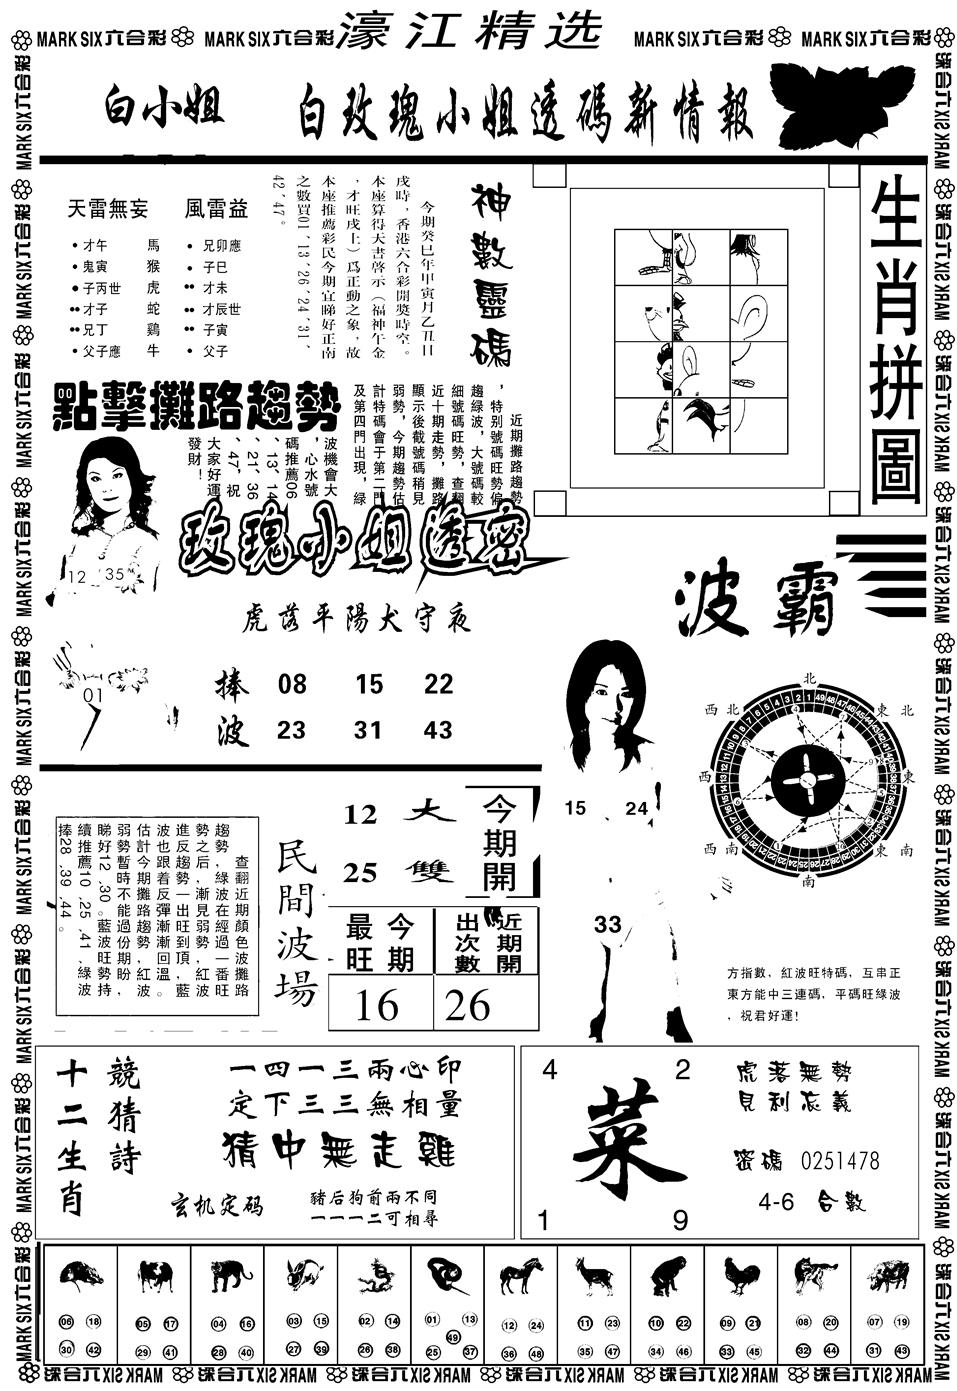 濠江精选
MARK SIX六合彩 MARK SIX六合彩 MARK SIX六合彩 MARK SIX六合彩
白小姐 白玫瑰小姐透碼新情報
天雷無妄
才午 馬
鬼寅 猴
子丙世 虎
才子 蛇
兄丁 鷄
父子應 牛
風雷益
兄卯應
子巳
才未
才辰世
子寅
父子
神數靈碼
今期癸巳年甲寅月乙丑日
戌時，香港六合彩開獎時空。
本座算得天書啓示（福神午金
，才旺戌上）爲正動之象，故
本座推薦彩民今期宜睇好正南
之數買01，13，26，24，31，
42，47。
生肖拼圖
點擊攤路趨勢
近期攤路趨勢
，特別號碼旺勢偏
趨綠波，大號碼較
細號碼旺勢，查翻
近十期走勢，攤路
顯示後截號碼稍見
弱勢，今期趨勢估
計特碼會于第二門
及第四門出現，綠
波機會大
，心水號
碼推薦06
、13、14
、21、36
、47，祝
大家好運
發財！
玫瑰小姐透密
12 35
01
虎落平陽犬守夜
捧波
08 15 22
23 31 43
波霸
北
東北
東
東南
南
西南
西
西北
15 24
33
方指數，紅波旺特碼，互串正
東方能中三連碼，平碼旺綠波
，祝君好運！
查翻近期顏色波攤路
趨勢，綠波在經過一番旺
勢之后，漸見弱勢，紅波
進反趨勢一出旺到頂，藍
波也跟着反彈漸漸回溫。
估計今期攤路趨勢，紅波
弱勢暫時不能過份期盼，
睇好12，30。藍波旺勢持
續推薦10，25，41，綠波
捧28，39，44。
民間波場
12 大
25 雙
今期開
最旺 今期
出次數 近期開
16 26
十二生肖
競猜詩
一四一三兩心印
定下三三無相量
猜中無走雞
玄机定码
豬后狗前兩不同
一一一二可相尋
4 2
菜
1 9
虎落無勢
見利忘義
密碼 0251478
4-6 合數
06 18 30 42
05 17 29 41
04 16 28 40
03 15 27 39
02 14 26 38
01 13 49 25 37
12 24 36 48
11 23 35 47
10 22 34 46
09 21 33 45
08 20 32 44
07 19 31 43